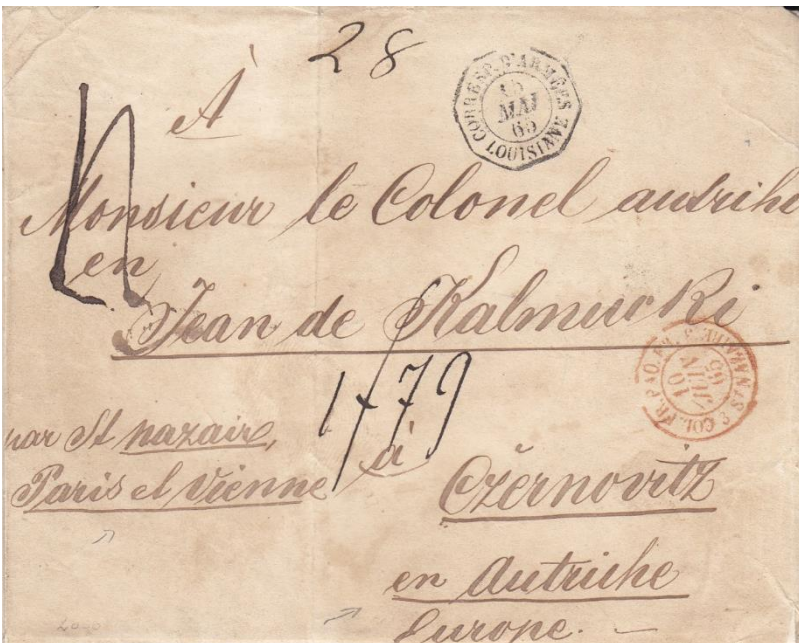 28
CORRESP. D'ARMÉES
15
MAI
65
LOUISIANE
À
Monsieur le Colonel autrihi
en
Jean de Kalmucki
COL. FR. PAQ. FR.
10
JUIN
65
1/79
par St nazaire,
à
Paris et Vienne
Czernovitz
en Autriche
Europe. —